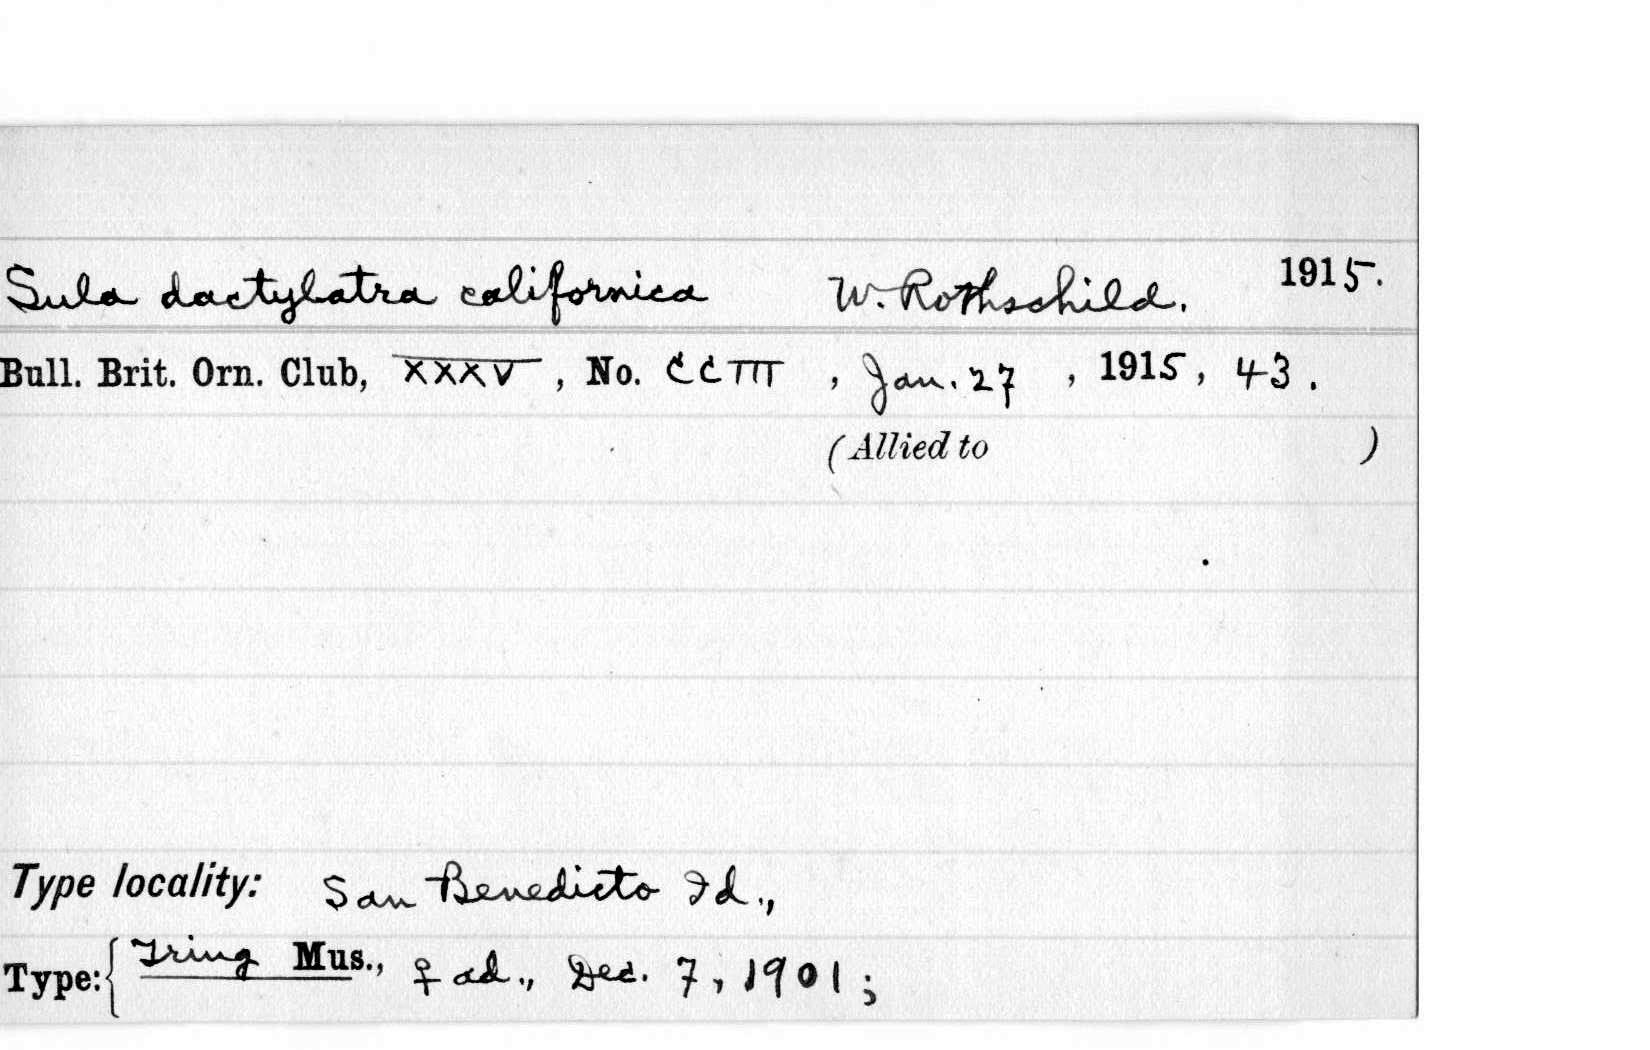 Sula dactylatra californica W. Rothschild. 1915.
Bull. Brit. Orn. Club, XXXV, No. CCIII, Jan. 27, 1915, 43.
(Allied to )
Type locality: San Benedicto Id.,
Type: { Tring Mus., ♀ ad., Dec. 7, 1901;